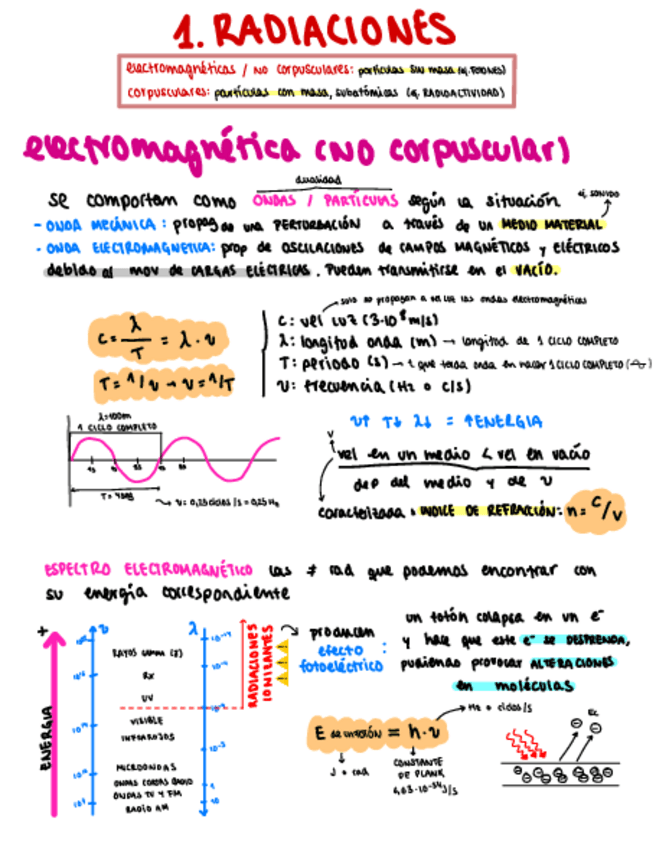 1. RADIACIONES
electromagnéticas / NO corpusculares: partículas SIN masa (ej. FOTONES)
corpusculares: partículas con masa, subatómicas (ej. RADIOACTIVIDAD)
electromagnética (NO corpuscular)
dualidad
se comportan como ONDAS / PARTÍCULAS según la situación
ej, SONIDO
- ONDA MECÁNICA: propag de una PERTURBACIÓN a través de un MEDIO MATERIAL
- ONDA ELECTROMAGNETICA: prop de OSCILACIONES de CAMPOS MAGNÉTICOS y ELÉCTRICOS
debido al mov de CARGAS ELÉCTRICAS. Pueden transmitirse en el VACÍO.
solo se propagan a vel luz las ondas electromagnéticas
c = λ/T = λ · ν
T = 1/ν → ν = 1/T
c: vel LUZ (3·10⁸ m/s)
λ: longitud onda (m) → longitud de 1 CICLO COMPLETO
T: periodo (s) → t que tarda onda en hacer 1 CICLO COMPLETO
ν: frecuencia (Hz o c/s)
λ=100m
1 CICLO COMPLETO
T= 4seg
ν= 0,25 ciclos/s = 0,25 Hz
ν↑ T↓ λ↓ = ↑ENERGIA
v
vel en un medio < vel en vacío
dep del medio y de ν
caracterizada x INDICE DE REFRACCIÓN: n = c/v
ESPECTRO ELECTROMAGNÉTICO las ≠ rad que podemos encontrar con
su energía correspondiente
+
ENERGÍA
ν
λ
RAYOS GAMMA (γ)
RX
UV
VISIBLE
INFRAROJOS
MICROONDAS
ONDAS CORTAS RADIO
ONDAS TV Y FM
RADIO AM
RADIACIONES IONIZANTES
producen
efecto fotoeléctrico :
un fotón colapsa en un e⁻
y hace que este e⁻ se DESPRENDA,
pudiendo provocar ALTERACIONES
en moléculas
E de un FOTÓN = h · ν
Hz o ciclos/s
J o rad
CONSTANTE
DE PLANK
6,63·10⁻³⁴ J/s
Ec